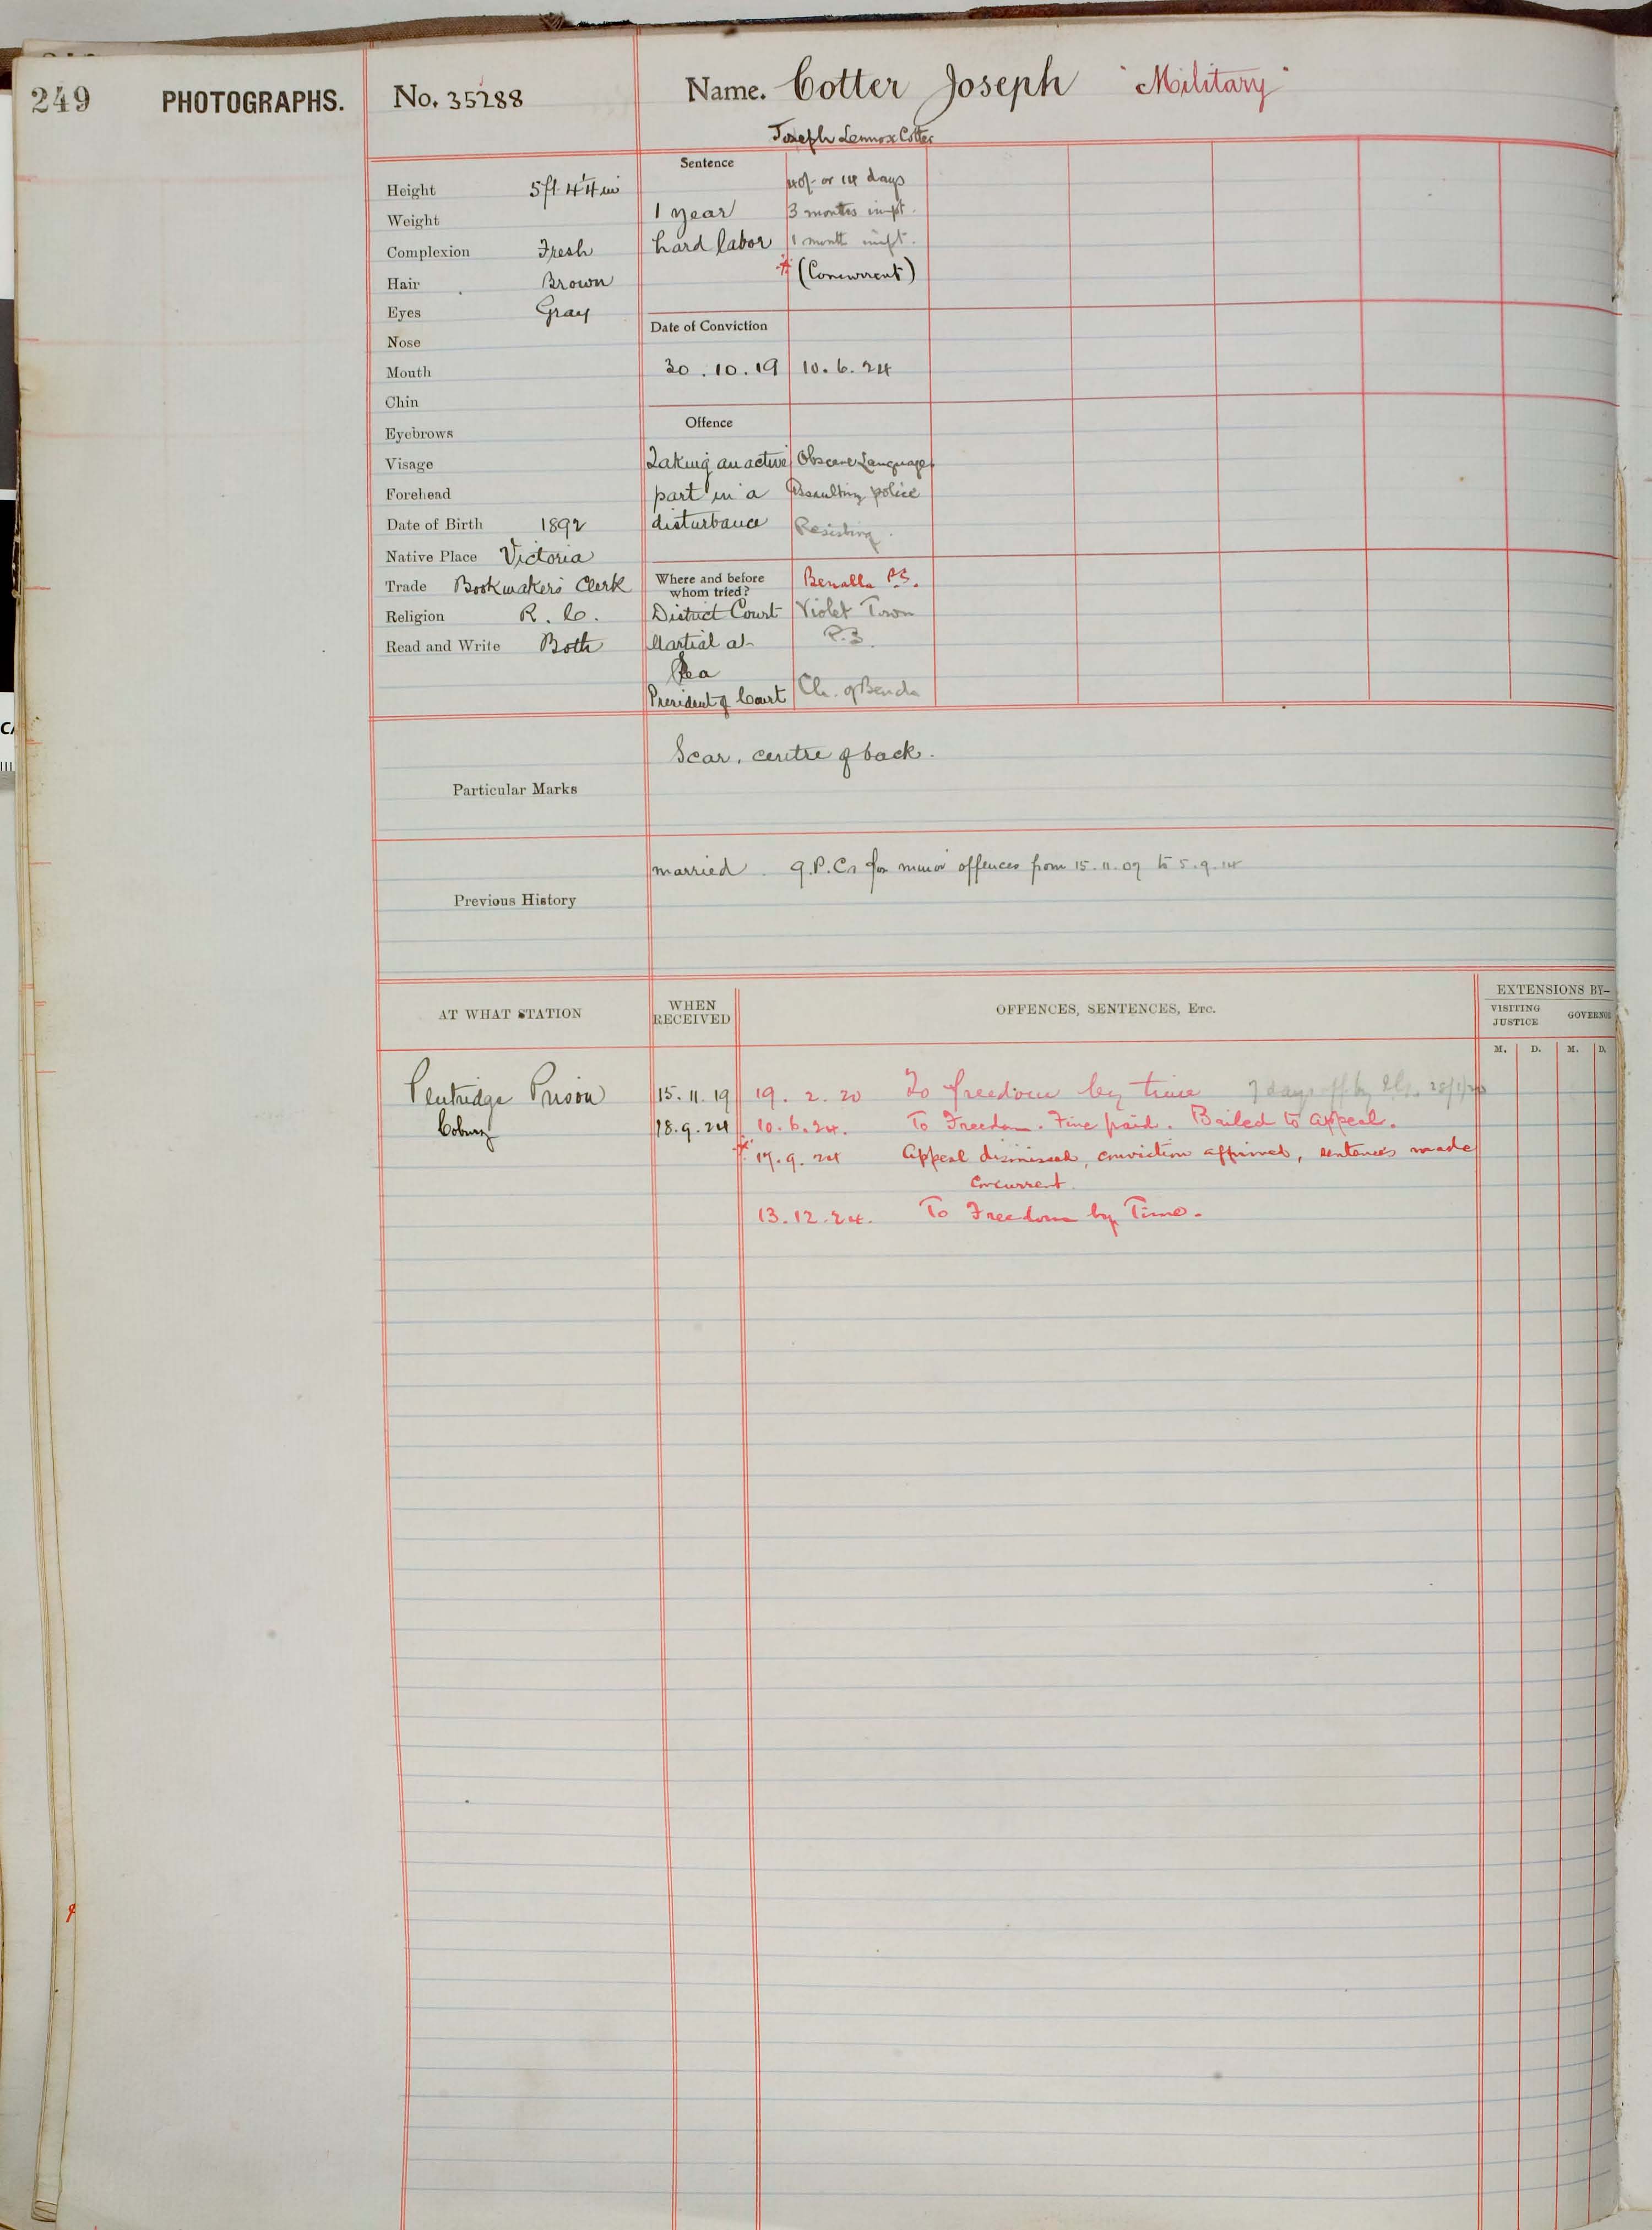 249
PHOTOGRAPHS.
No. 35288
Name. Cotter Joseph "Military"
Joseph Lennox Cotter
Height 5ft 4¼ in
Weight
Complexion Fresh
Hair Brown
Eyes Gray
Nose
Mouth
Chin
Eyebrows
Visage
Forehead
Date of Birth 1892
Native Place Victoria
Trade Bookmakers Clerk
Religion R. C.
Read and Write Both
Sentence
1 year
hard labor
40/- or 14 days
3 months impt.
1 month impt.
* (Concurrent)
Date of Conviction
30.10.19
10.6.24
Offence
Taking an active
part in a
disturbance
Obscene Language
Assaulting police
Resisting
Where and before
whom tried?
District Court
Martial at
Sea
President of Court
Benalla P.S.
Violet Town
Ch. of Bench
Particular Marks
Scar, centre of back.
Previous History
married. 9.P.Cs for minor offences from 15.11.09 to 5.9.14
AT WHAT STATION
WHEN
RECEIVED
OFFENCES, SENTENCES, ETC.
EXTENSIONS BY—
VISITING
JUSTICE
GOVERNOR
M. D. M. D.
Pentridge Prison 15.11.19 19.2.20 To freedom by time 7 days off by
Coburg 18.9.24 10.6.24. To Freedom. Fine paid. Bailed to appeal.
* 17.9.24 Appeal dismissed, conviction affirmed, sentences made
concurrent.
13.12.24. To Freedom by Time.